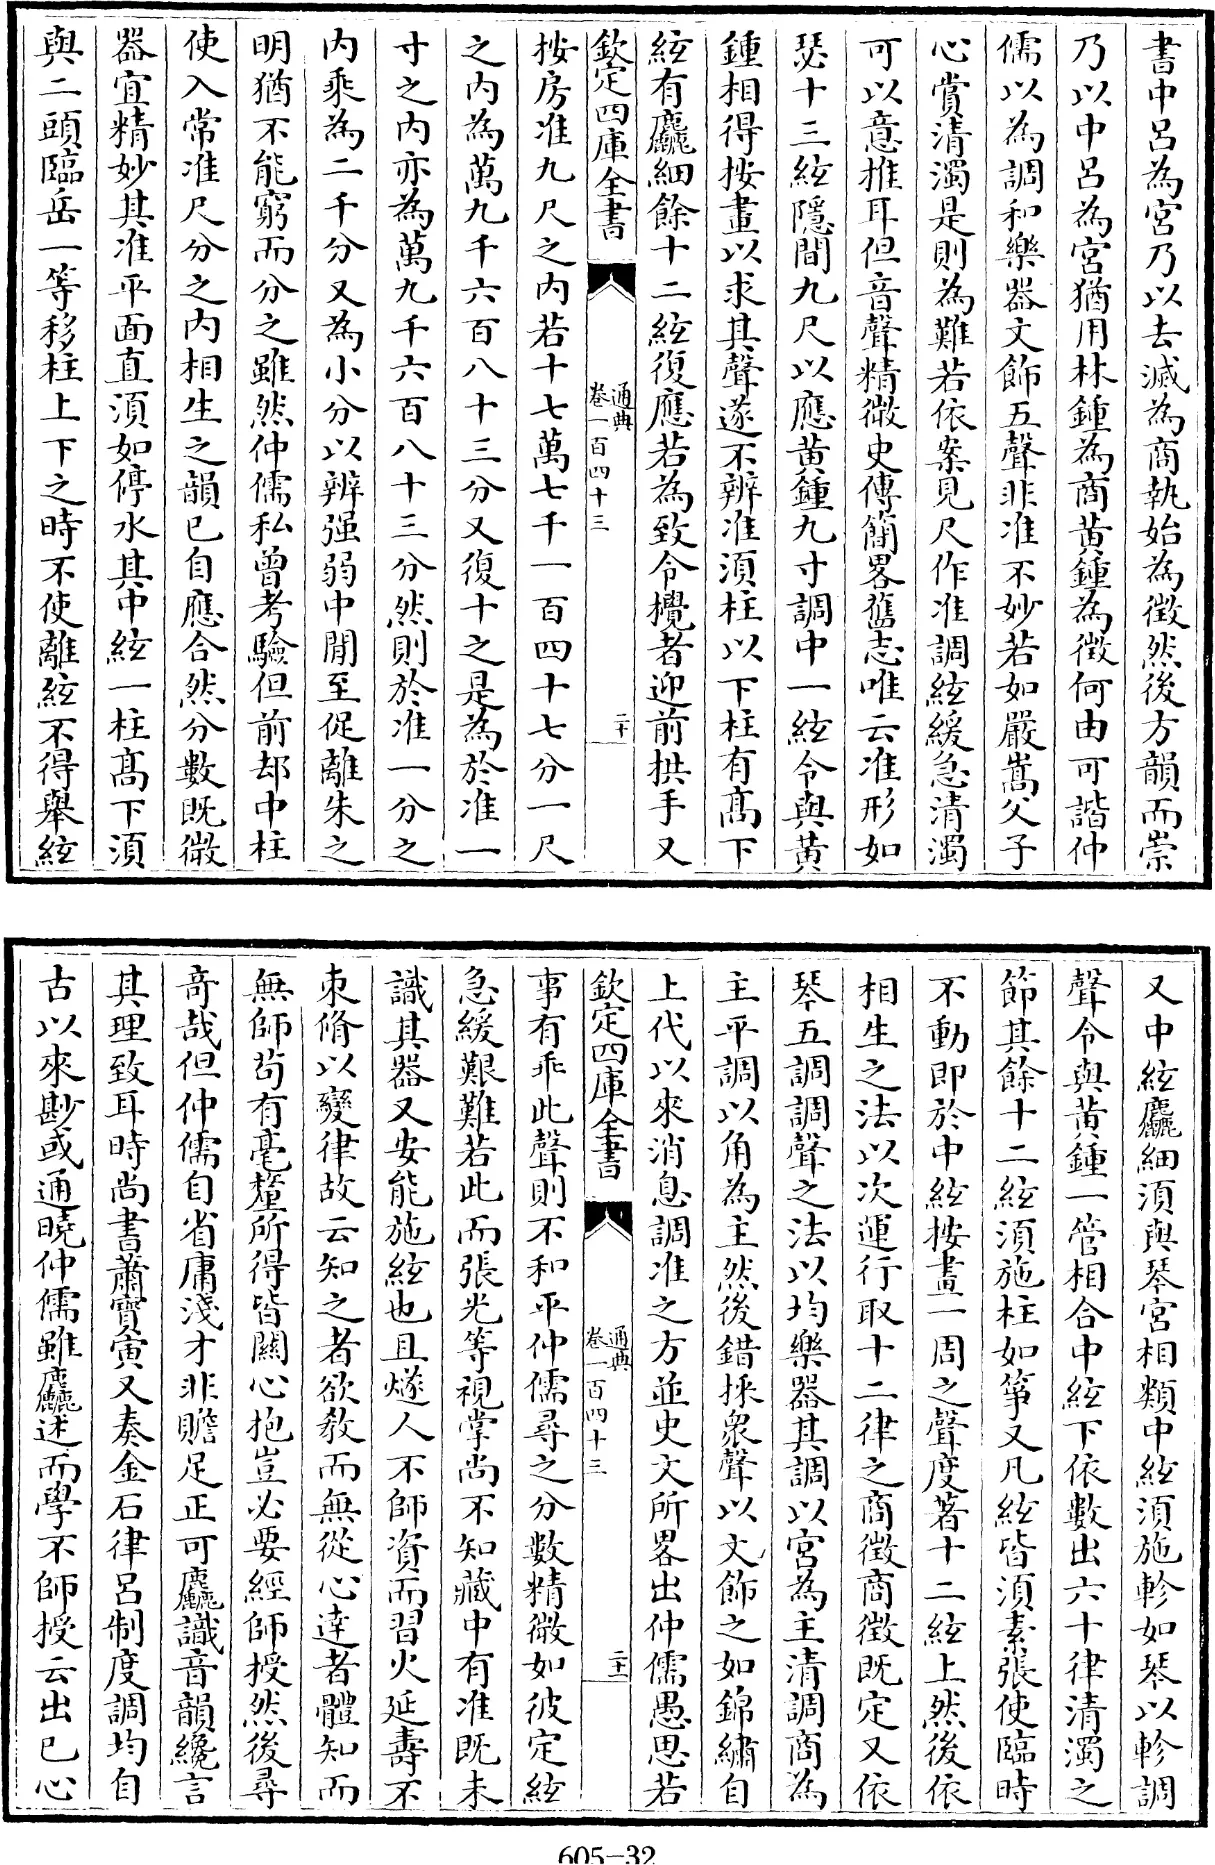 書中呂為宮乃以去滅為商執始為徵然後方韻而崇
乃以中呂為宮猶用林鍾為商黃鍾為徵何由可諧仲
儒以為調和樂器文飾五聲非准不妙若如嚴嵩父子
心賞清濁是則為難若依案見尺作准調絃緩急清濁
可以意推耳但音聲精微史傳簡畧舊志唯云准形如
瑟十三絃隱間九尺以應黃鍾九寸調中一絃令與黃
鍾相得按畫以求其聲遂不辨准須柱以下柱有髙下
絃有麤細餘十二絃復應若為致令攪者迎前拱手又
欽定四庫全書
通典
卷一百四十三
二十
按房准九尺之内若十七萬七千一百四十七分一尺
之内為萬九千六百八十三分又復十之是為於准一
寸之内亦為萬九千六百八十三分然則於准一分之
内乘為二千分又為小分以辨强弱中間至促離朱之
明猶不能窮而分之雖然仲儒私曾考驗但前却中柱
使入常准尺分之内相生之韻已自應合然分數既微
器宜精妙其准平面直須如停水其中絃一柱髙下須
與二頭臨岳一等移柱上下之時不使離絃不得舉絃
又中絃麤細須與琴宮相類中絃須施軫如琴以軫調
聲令與黃鍾一管相合中絃下依數出六十律清濁之
節其餘十二絃須施柱如箏又凡絃皆須素張使臨時
不動即於中絃按畫一周之聲度著十二絃上然後依
相生之法以次運行取十二律之商徵商徵既定又依
琴五調調聲之法以均樂器其調以宮為主清調商為
主平調以角為主然後錯採衆聲以文飾之如錦繡自
上代以來消息調准之方並史文所畧出仲儒愚思若
欽定四庫全書
通典
卷一百四十三
二十一
事有乖此聲則不和平仲儒尋之分數精微如彼定絃
急緩艱難若此而張光等視掌尚不知藏中有准既未
識其器又安能施絃也且燧人不師資而習火延壽不
束脩以變律故云知之者欲教而無從心達者體知而
無師茍有毫釐所得皆關心抱豈必要經師授然後尋
竒哉但仲儒自省庸淺才非贍足正可麤識音韻纔言
其理致耳時尚書蕭寳寅又奏金石律呂制度調均自
古以來尠或通曉仲儒雖麤述而學不師授云出已心
605-32